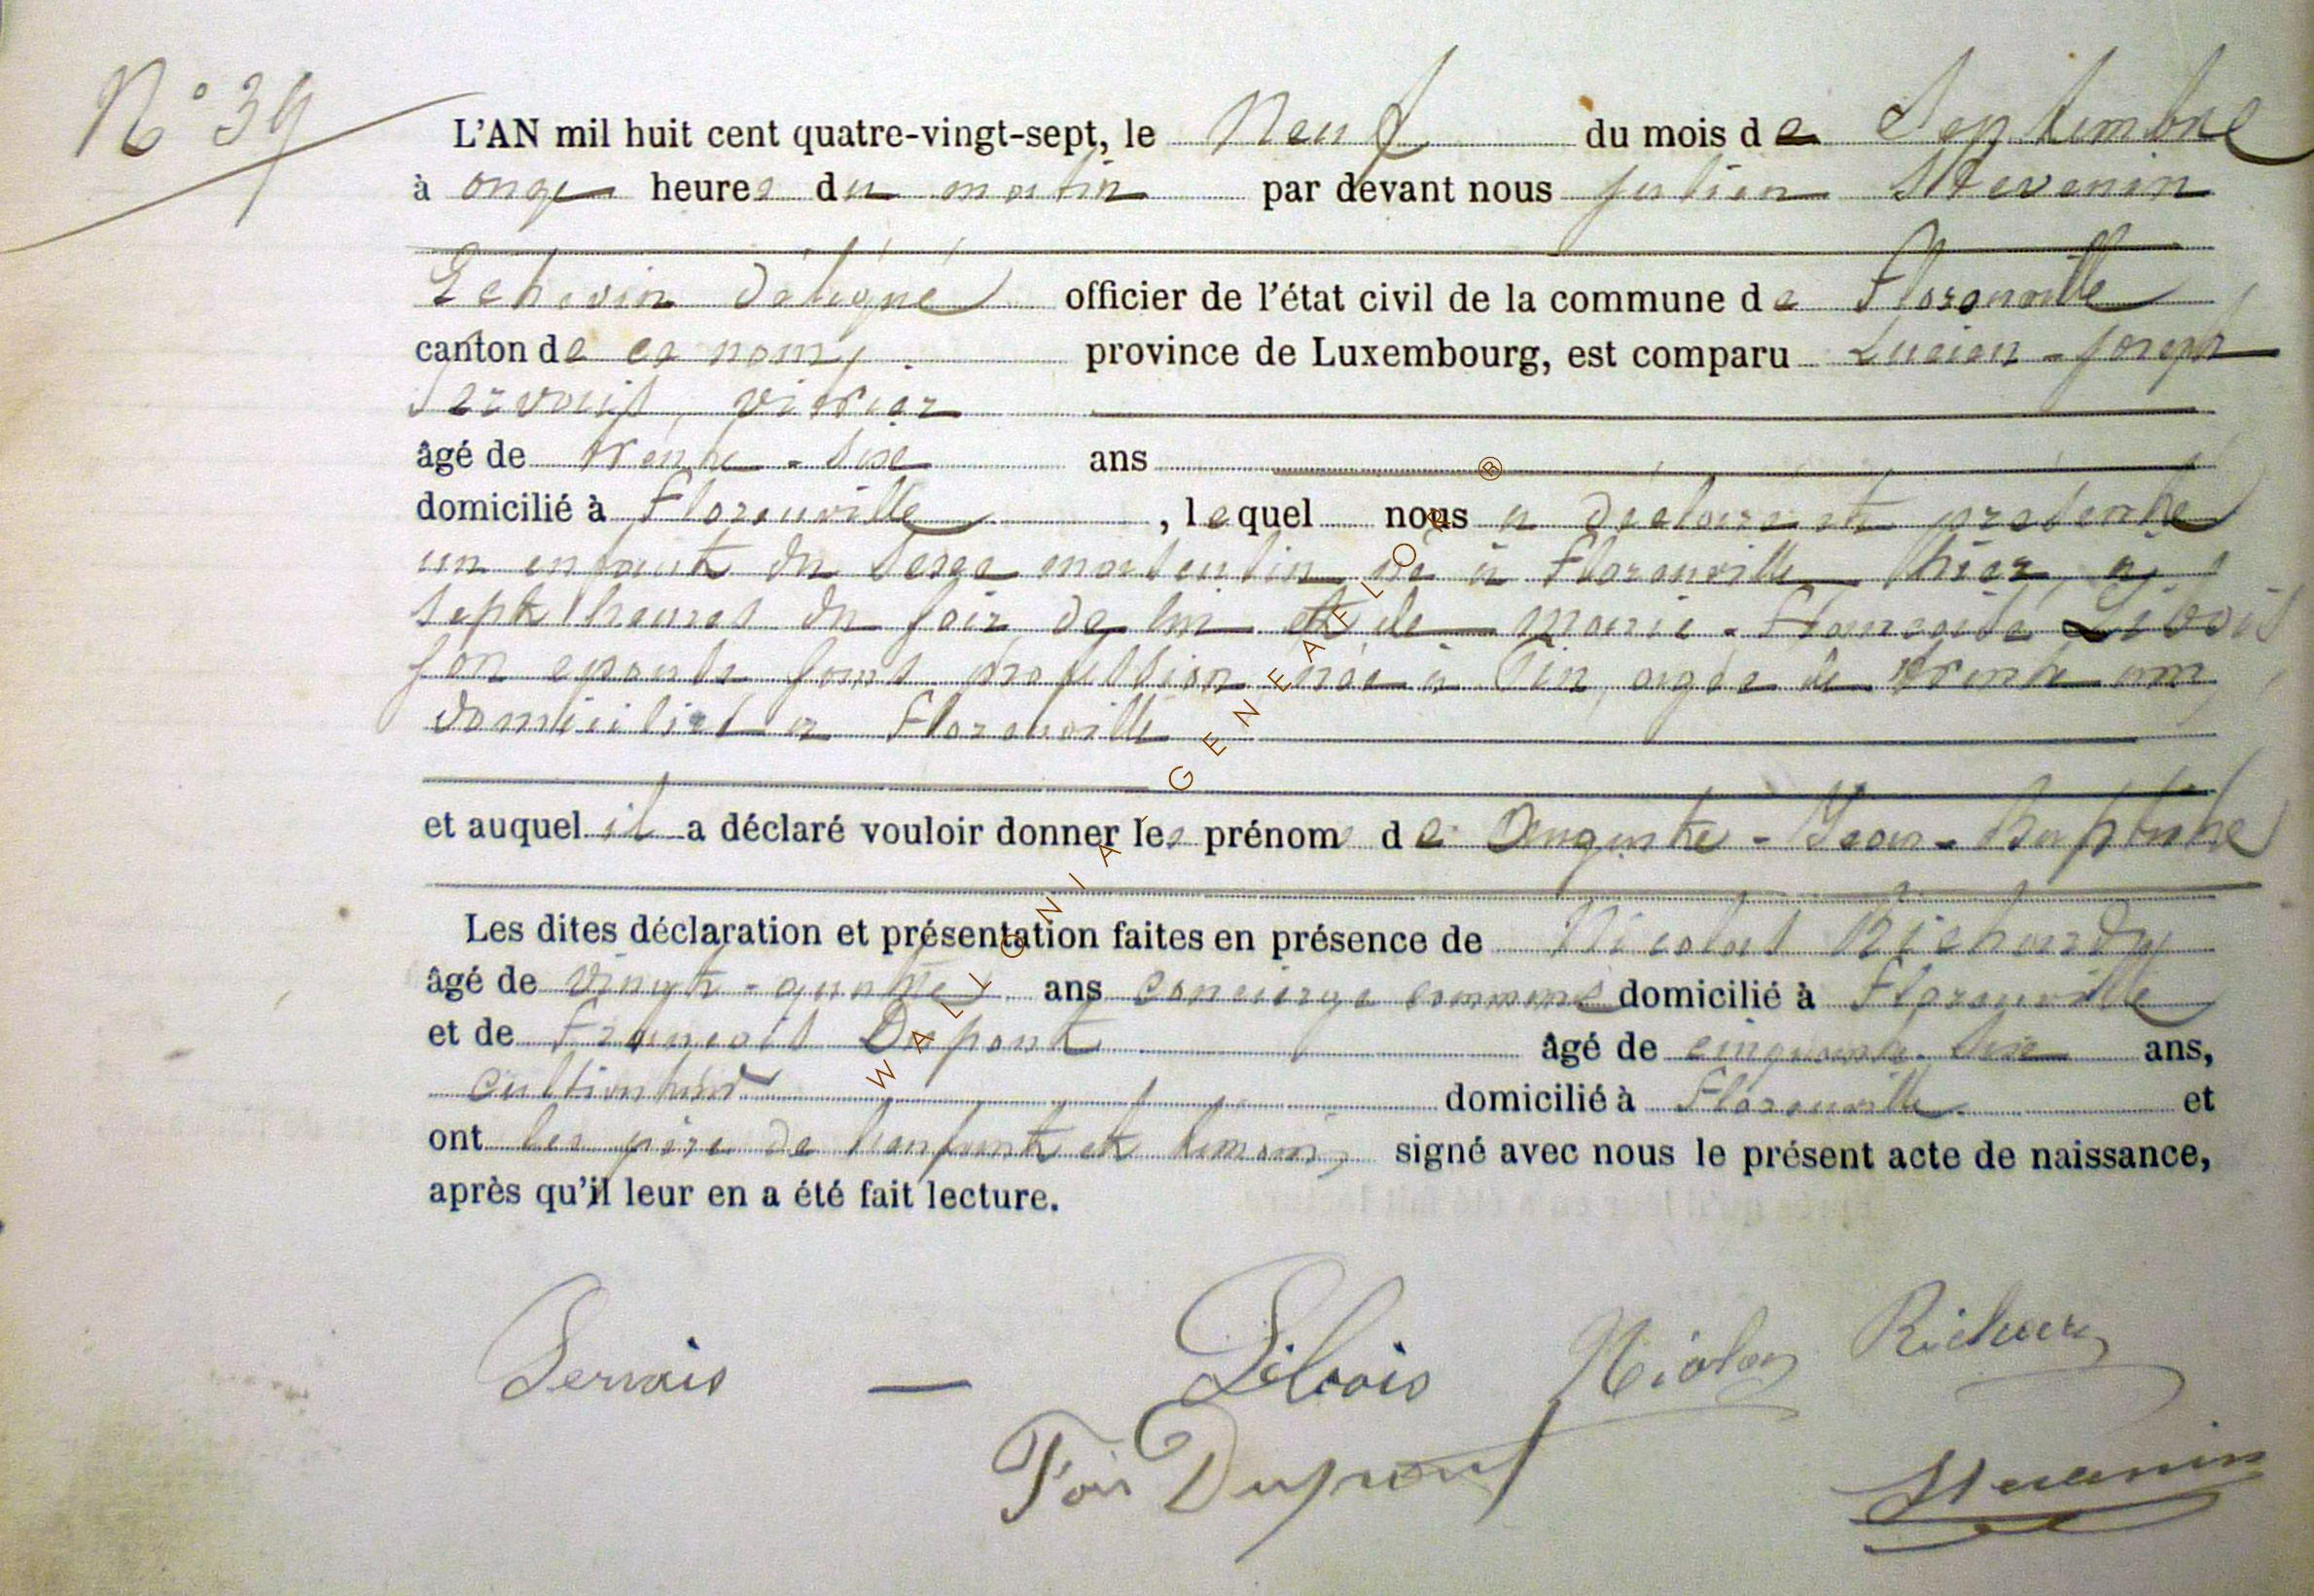 N° 39
L'AN mil huit cent quatre-vingt-sept, le Neuf du mois de Septembre
à onze heures du matin par devant nous Julien Stevenin
Echevin délégué officier de l'état civil de la commune de Florenville
canton de ce nom, province de Luxembourg, est comparu Lucien - Joseph
Servais, vitrier
âgé de trente - six ans
domicilié à Florenville, lequel nous a déclaré et présenté
un enfant du sexe masculin né à Florenville hier, à
sept heures du soir de lui et de Marie - Françoise Libois
son epouse sans profession née à Pin, agée de trente ans,
domiciliés a Florenville
et auquel il a déclaré vouloir donner les prénoms de Auguste - Jean - Baptiste
Les dites déclaration et présentation faites en présence de Nicolas Richardy
âgé de vingt - quatre ans concierge domicilié à Florenville
et de François Dupont âgé de cinquante - six ans,
cultivateur domicilié à Florenville et
ont les père de l'enfant et temoins, signé avec nous le présent acte de naissance,
après qu'il leur en a été fait lecture.
Servais — Libois Nicolas Richardy
Fois Dupont
Stevenin
WALLONIA GENEAFLOR ®